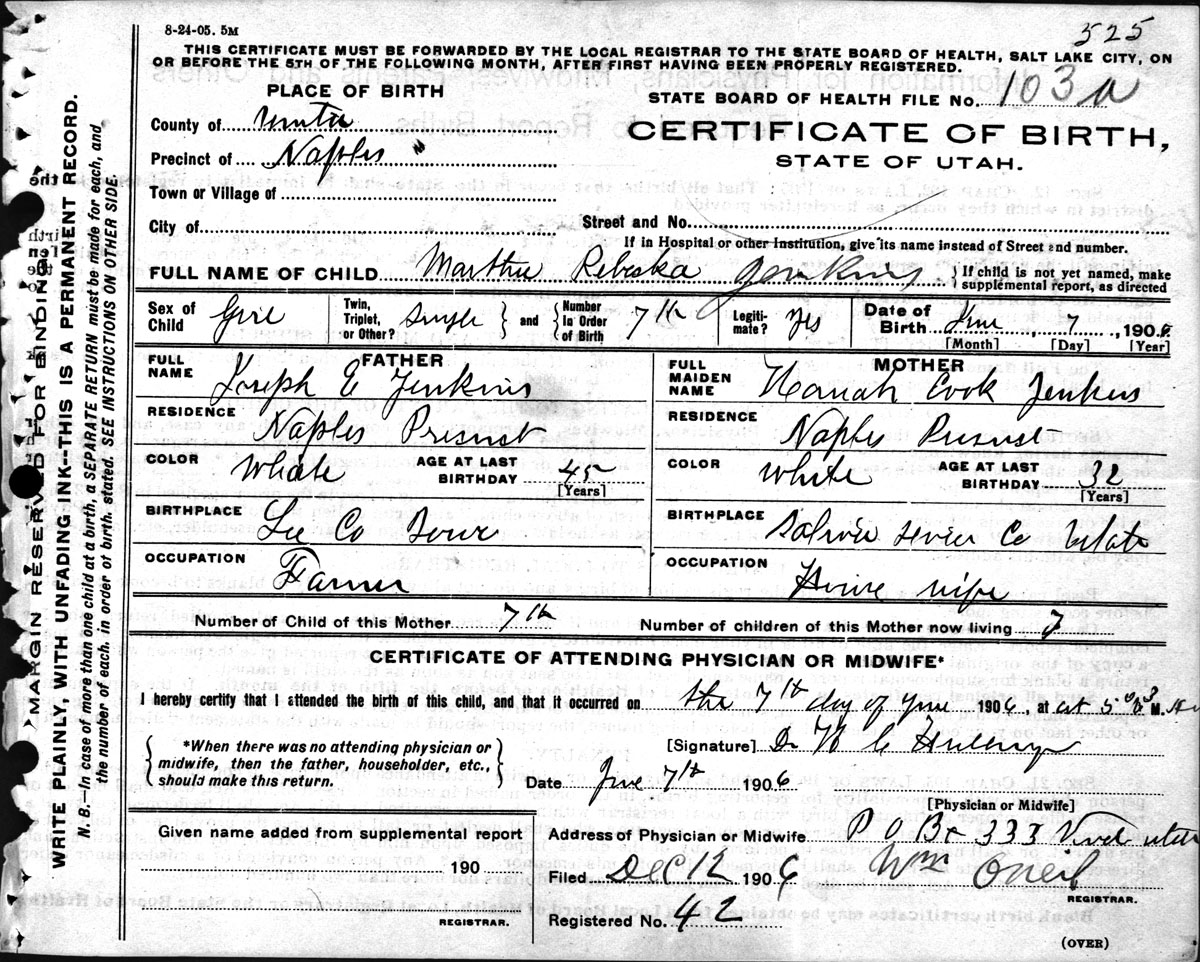 8-24-05. 5M
525
THIS CERTIFICATE MUST BE FORWARDED BY THE LOCAL REGISTRAR TO THE STATE BOARD OF HEALTH, SALT LAKE CITY, ON
OR BEFORE THE 5TH OF THE FOLLOWING MONTH, AFTER FIRST HAVING BEEN PROPERLY REGISTERED.
PLACE OF BIRTH
STATE BOARD OF HEALTH FILE No. 103 a
County of
CERTIFICATE OF BIRTH,
Precinct of Naples
STATE OF UTAH.
Town or Village of
City of
Street and No.
If in Hospital or other Institution, give its name instead of Street and number.
FULL NAME OF CHILD Martha Rebeska Jenkins } If child is not yet named, make supplemental report, as directed
Sex of Child Girl Twin, Triplet, or Other? Single } and { Number In Order of Birth 7th Legiti- mate? Yes Date of Birth June 7, 1906
[Month] [Day] [Year]
FATHER
FULL NAME Joseph E Jenkins
RESIDENCE Naples
COLOR White AGE AT LAST BIRTHDAY 45
[Years]
BIRTHPLACE Lee Co
OCCUPATION Farmer
MOTHER
FULL MAIDEN NAME Hanah Cook Jenkins
RESIDENCE Naples
COLOR White AGE AT LAST BIRTHDAY 32
[Years]
BIRTHPLACE Sevier Co
OCCUPATION House wife
Number of Child of this Mother 7th
Number of children of this Mother now living 7
CERTIFICATE OF ATTENDING PHYSICIAN OR MIDWIFE*
I hereby certify that I attended the birth of this child, and that it occurred on the 7th day of June 1906, at M.
{ *When there was no attending physician or midwife, then the father, householder, etc., should make this return. }
[Signature] Dr
Date June 7th 1906
[Physician or Midwife]
Given name added from supplemental report
190
REGISTRAR.
Address of Physician or Midwife P O Bx 333
Filed DEC 12 1906 Wm Oneil
REGISTRAR.
Registered No. 42
(OVER)
MARGIN RESERVED FOR BINDING.
WRITE PLAINLY, WITH UNFADING INK--THIS IS A PERMANENT RECORD.
N. B.—In case of more than one child at a birth, a SEPARATE RETURN must be made for each, and
the number of each, in order of birth, stated. SEE INSTRUCTIONS ON OTHER SIDE.